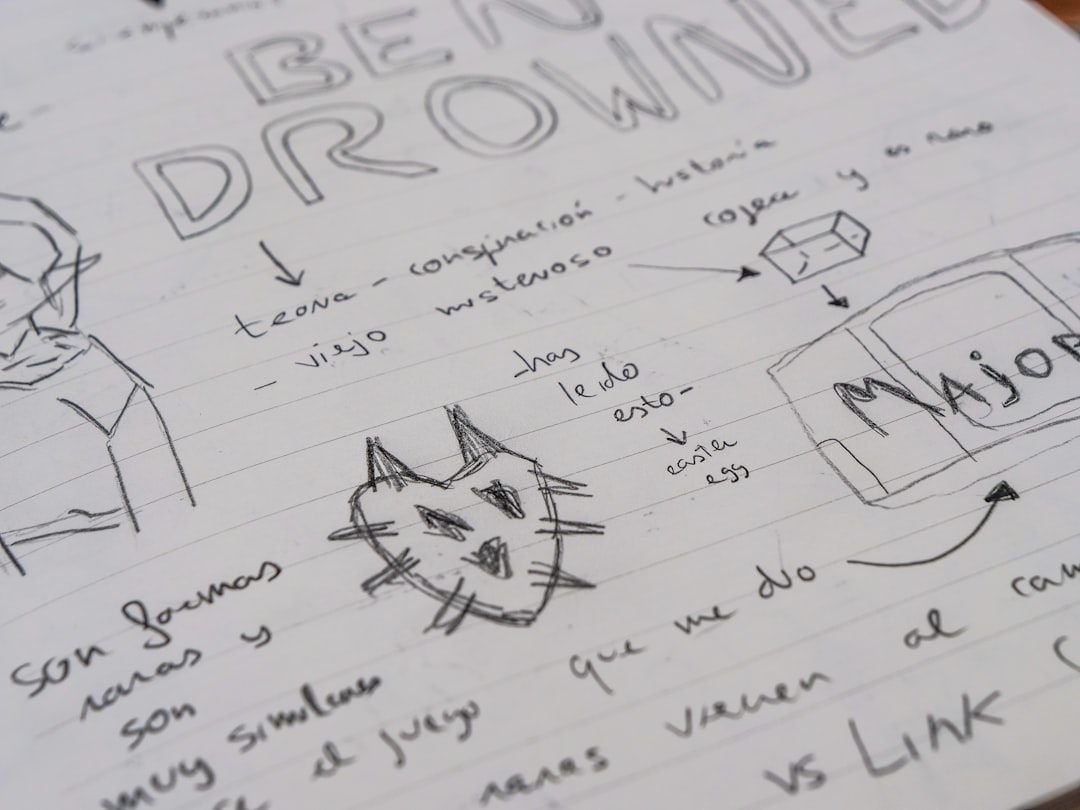 BEN
DROWNED
teoria - conspiración - historia
- viejo misterioso
cojea y es raro
-has
leido
esto-
easter
egg
MAJOR
son formas
raras y
son
muy similares
el juego
que me dio
raras vienen al cam
vs LINK